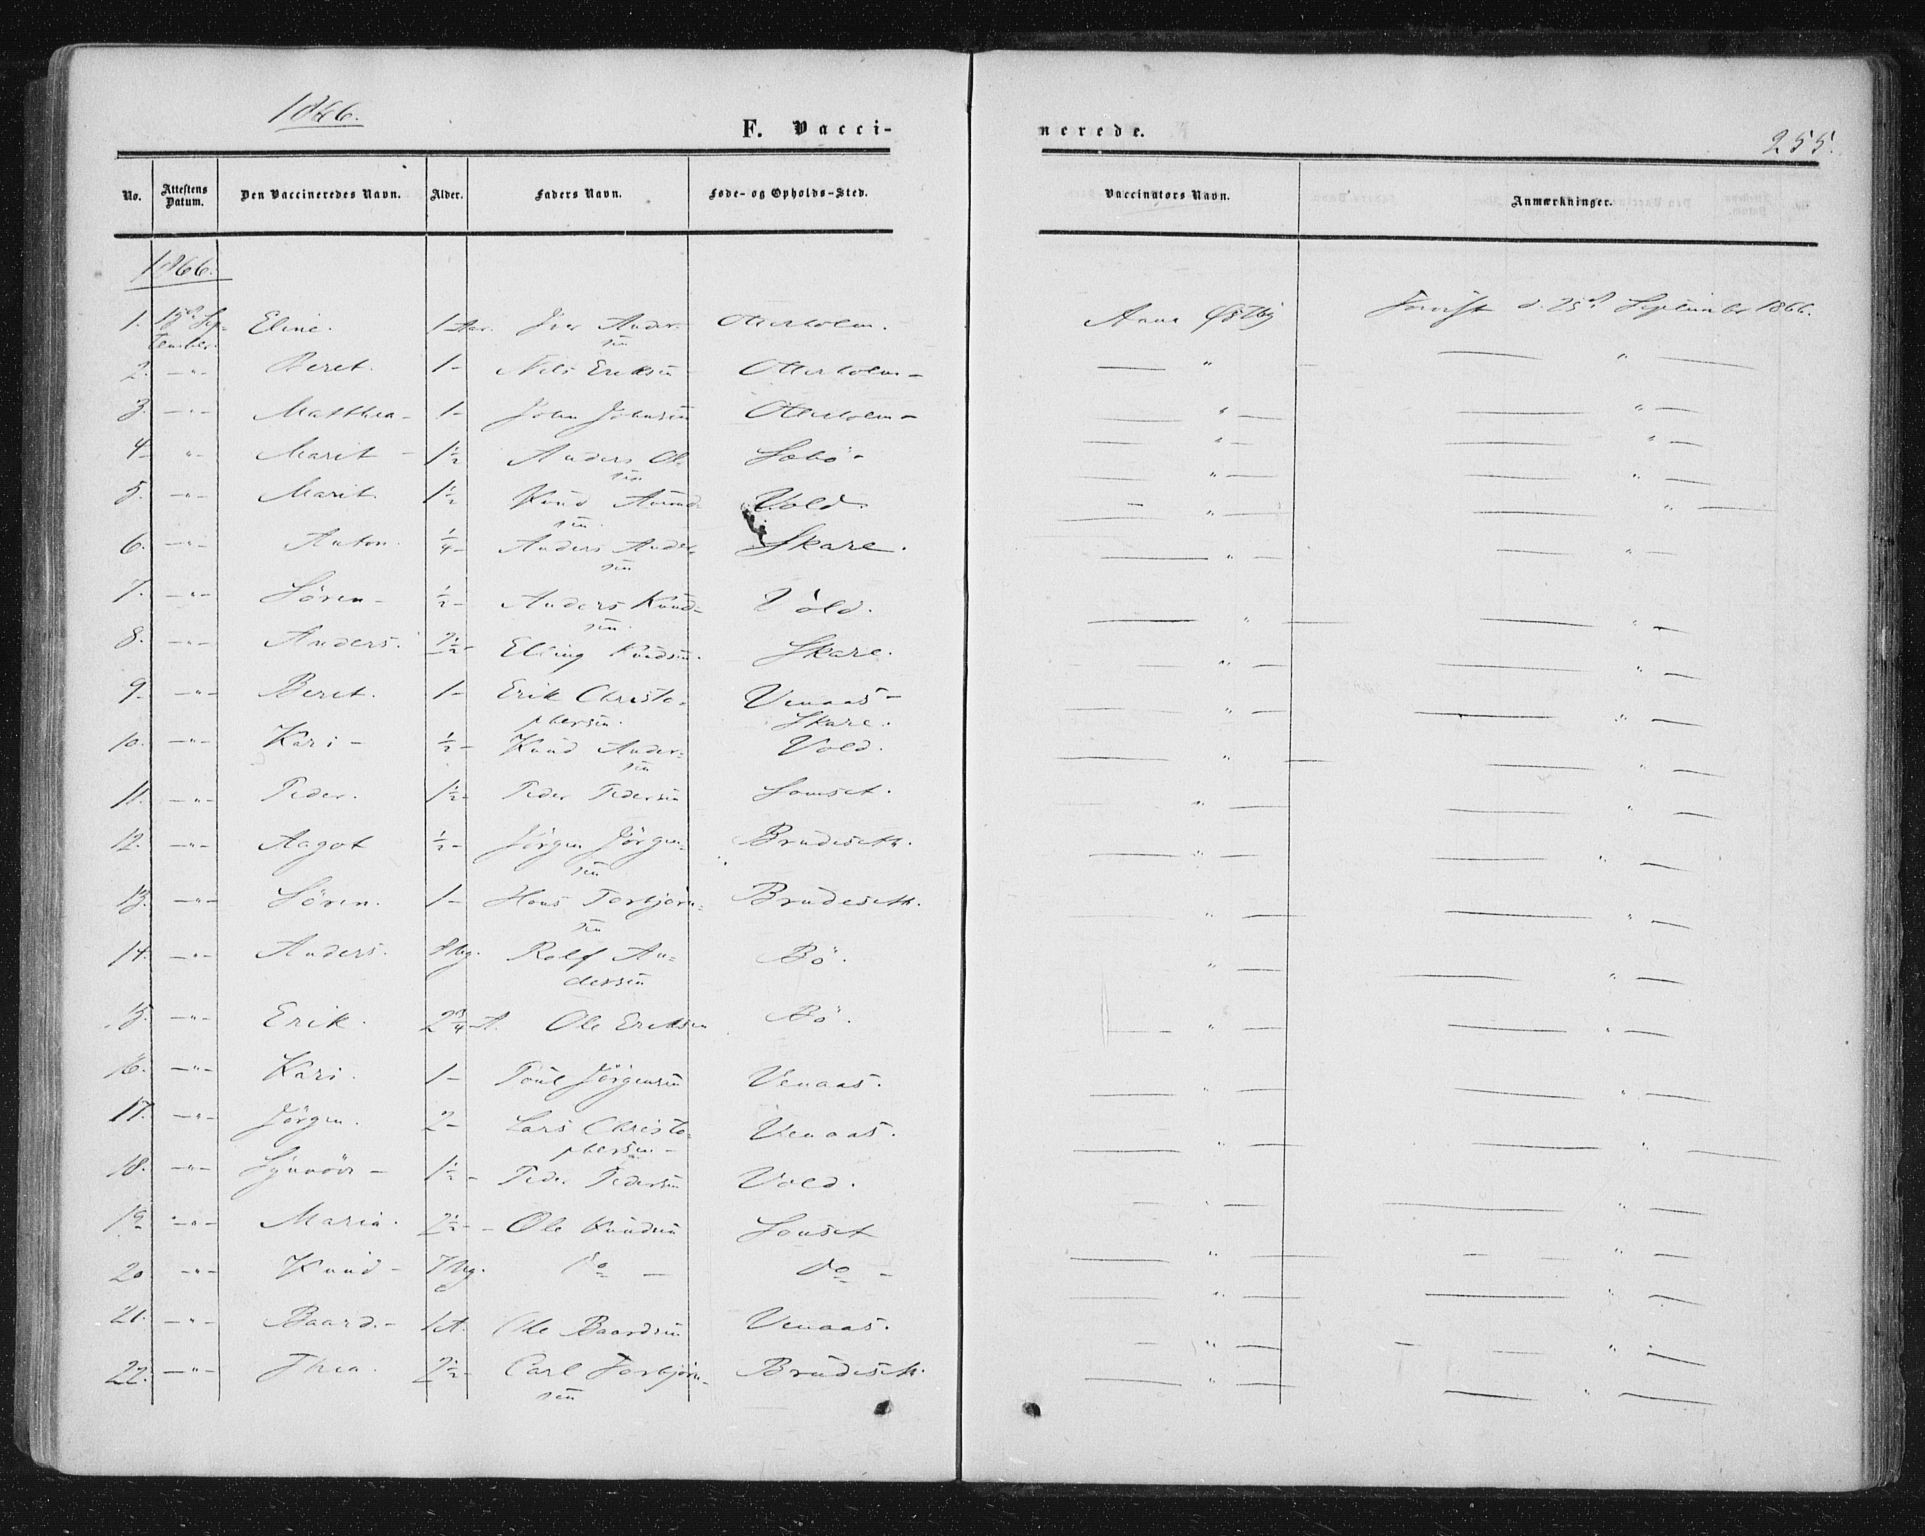 1866.
F. Vacci-
nerede.
255.
No. Attestens Datum. Den Vaccineredes Navn. Alder. Faders Navn. Føde- og Opholds-Sted. Vaccinators Navn. Anmærkninger.
1866.
1. 15de Sep-tember. Eline. 1 Aar. Iver Ander-sen Otterholm. Anna d. 25de September 1866.
2. -"- Beret. 1- Nils Eriksen Otterholm - — " — — " —
3. -"- Matthea - 1- John Johnsen Otterholm - — " — — " —
4- " - Marit - 1½ Anders Ol-sen Sæbö - — " — — " —
5. -"- Marit 1½ Knud Amund-sen. Vold. — " — — " —
6. -"- Anton. ¼- Anders Ander-sen Skare. — " — — " —
7. -"- Sören - ½- Anders Knud-sen. Vold. — " — — " —
8. -"- Anders. 2½- Elling Knudsen. Skare. — " — — " —
9. -"- Beret. 1- Erik Christo-phersen. Venaas - Skare. — " — — " —
10. -"- Kari - ½- Knud Ander-sen Vold. — " — — " —
11. -"- Peder. 1½- Peder Pedersen Sonset. — " — — " —
12. -"- Aagot ½- Jörgen Jörgen-sen Brudeseth. — " — — " —
13. -"- Sören. 1- Hans Torbjörn-sen Brudeseth. — " — — " —
14. -"- Anders. Rolf An-dersen Bö. — " — — " —
15. -"- Erik. 2¾ A. Ole Eriksen Bö. — " — — " —
16. -"- Kari. 1- Poul Jörgensen Venaas. — " — — " —
17. -"- Jörgen. 2- Lars Christo-phersen - Venaas. — " — — " —
18. -"- Synnöv - 1½- Peder Pedersen Vold. — " — — " —
19. -"- Maria. 2½- Ole Knudsen Sonset — " — — " —
20 -"- Knud - do — do - — " — — " —
21. -"- Baard. - 1 A. Ole Baardsen Venaas. — " — — " —
22. -"- Thea. 2½- Carl Torbjörn-sen Brudeseth. — " — — " —